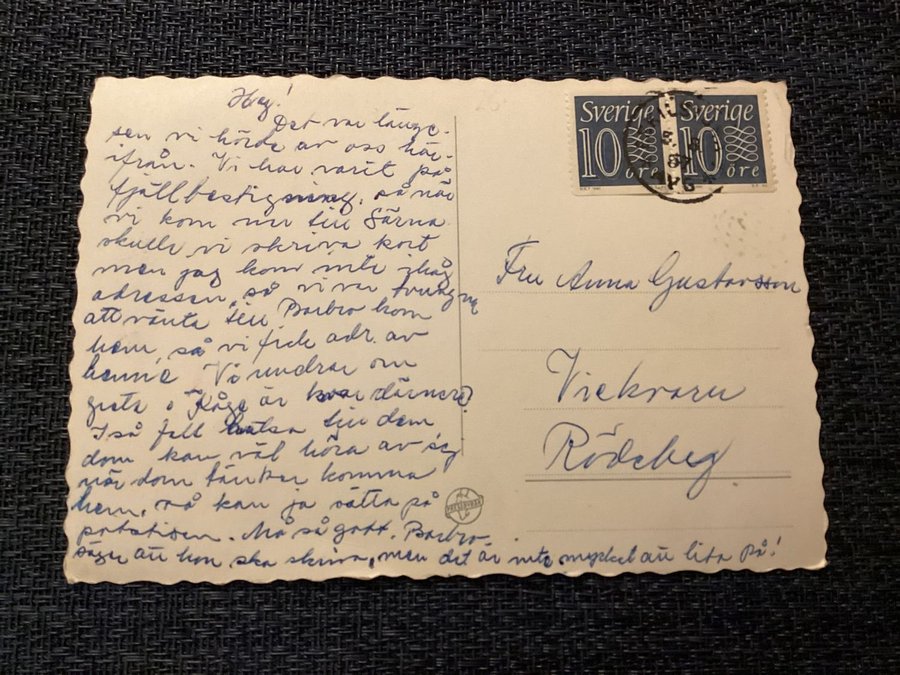 Hej!
Det var länge-
sen vi hörde av oss här-
ifrån. Vi har varit på
fjällbestigning, så när
vi kom ner till Särna
skulle vi skriva kort
men jag kom inte ihåg
adressen, så vi var tvungna
att vänta till Barbro kom
hem, så vi fick adr. av
henne. Vi undrar om
Åge är kvar därnere?
I så fall hälsa till dem,
dom kan väl höra av sig
när dom tänker komma
hem, så kan ja sätta på
potatisen. Må så gott. Barbro
säger att hon ska skriva, men det är inte mycket att lita på!
Sverige
10
öre
Sverige
10
öre
Fru Anna Gustavsson
Rödeby